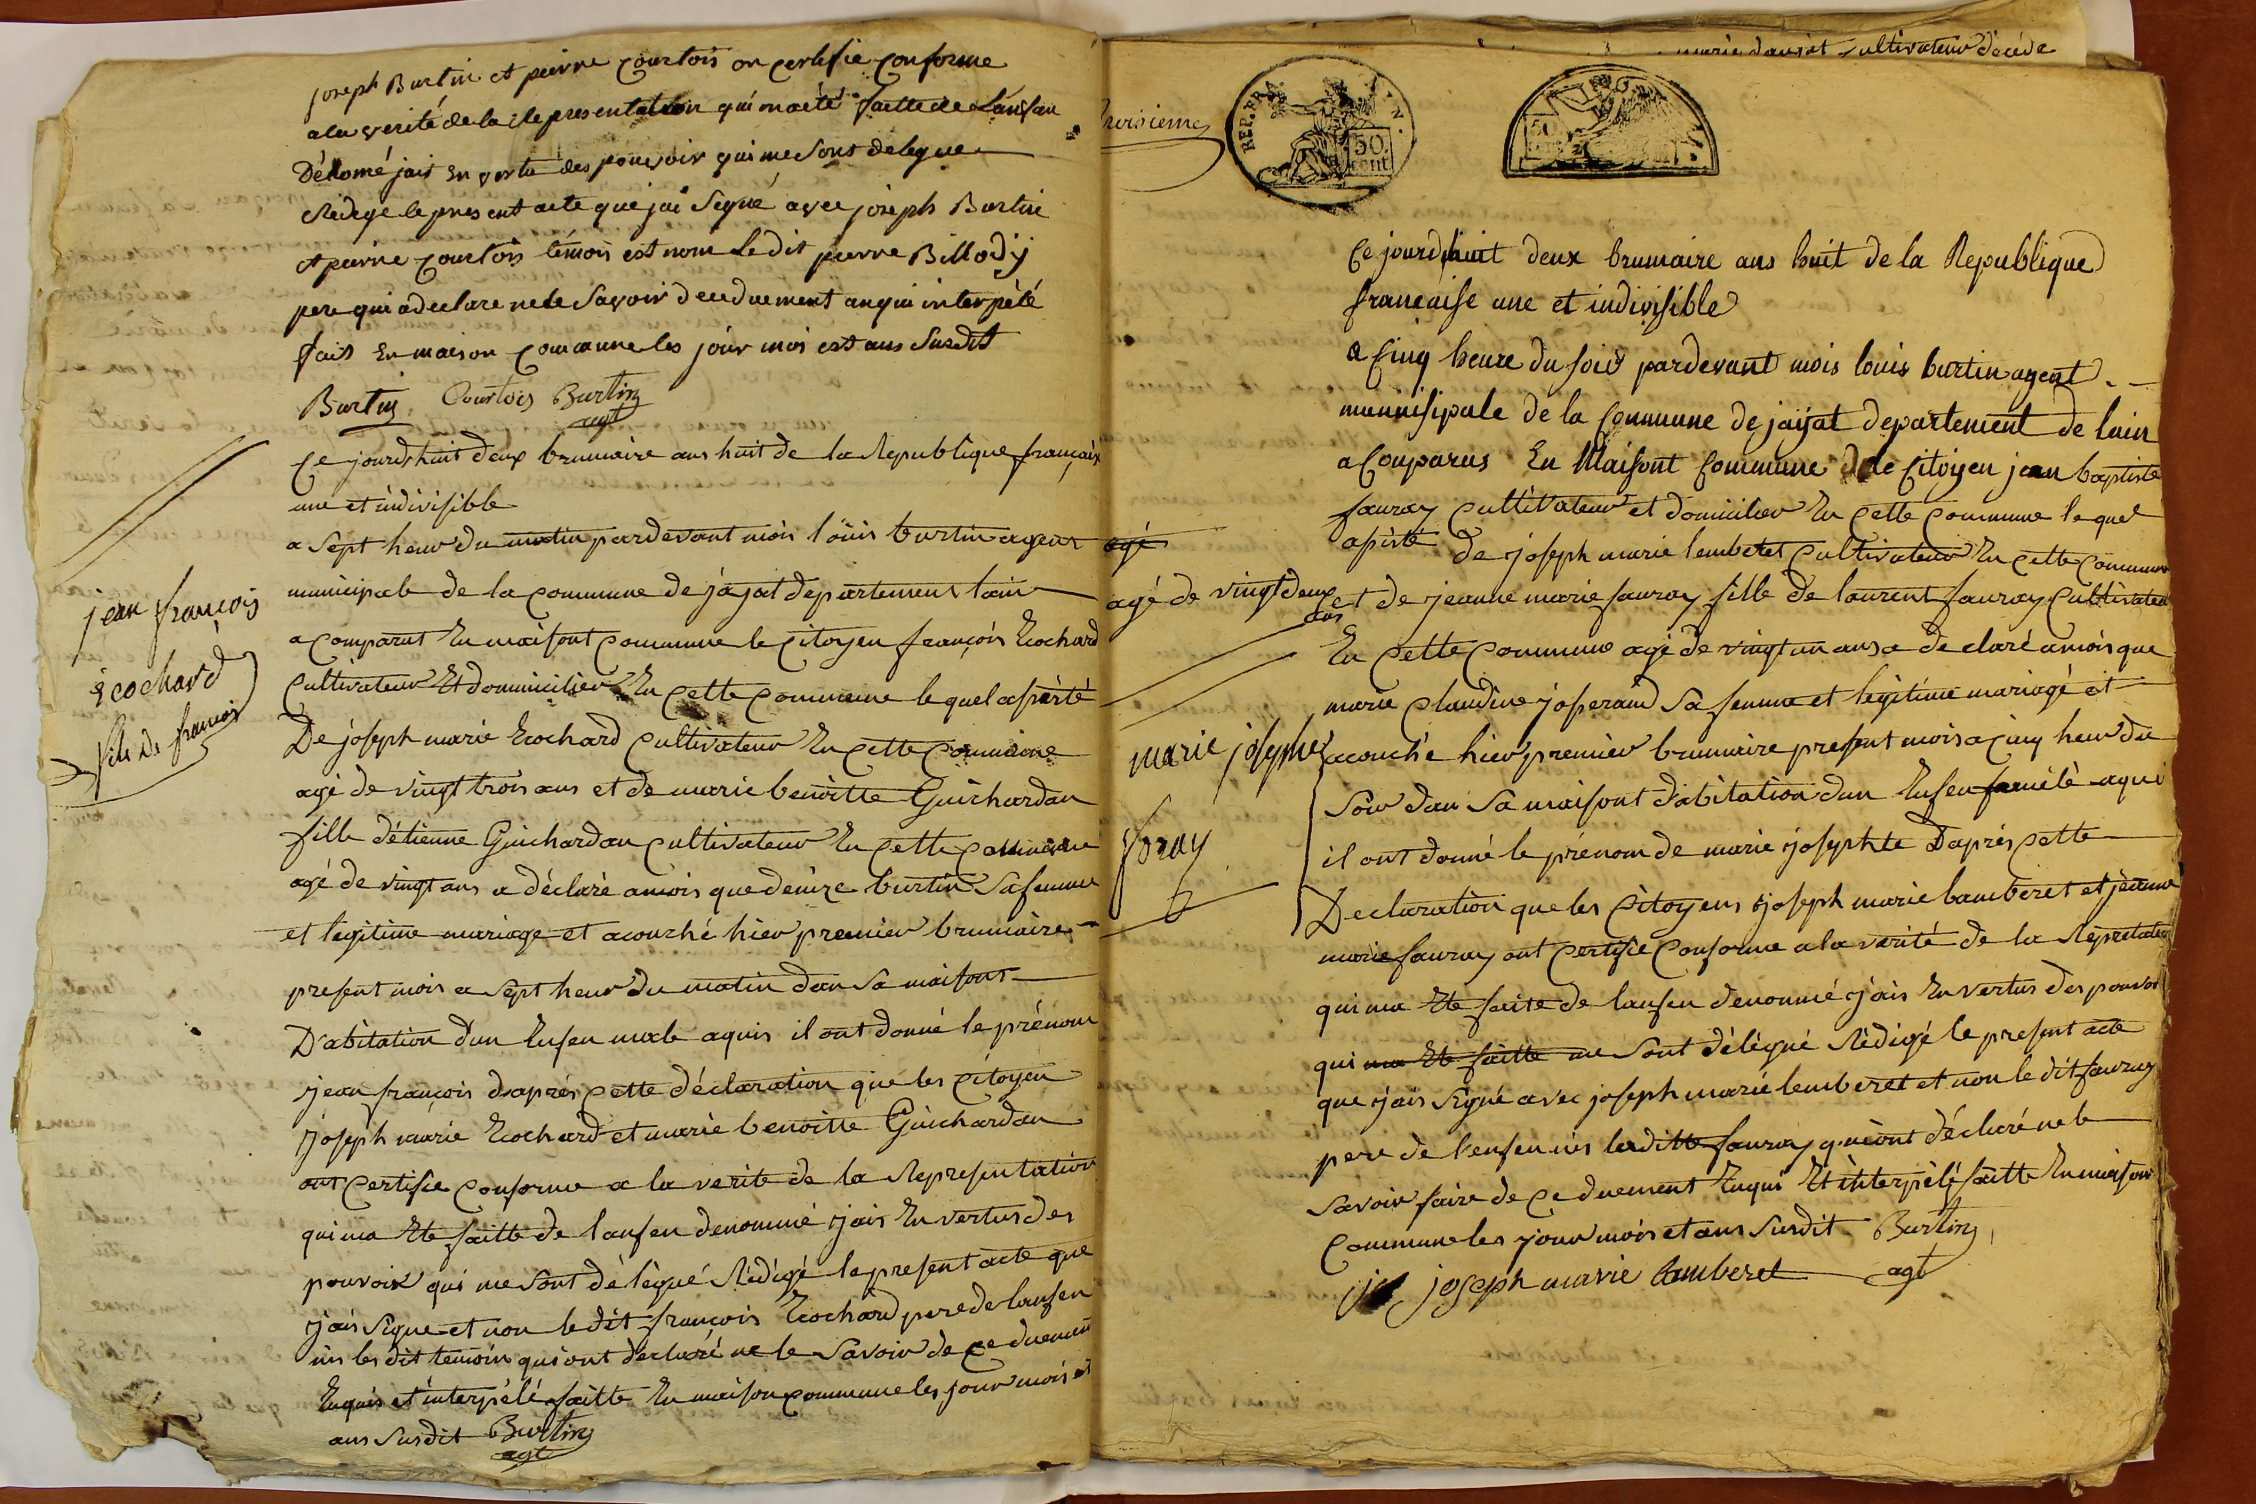 joseph Burtin et pierre courtois on certifie conforme
a la verité de la Representation qui ma été faitte de Lanfan
Dénomé jais En vertu des pouvoir qui me sont delegue
Rédige le present acte que jai Signé avec joseph Burtin
et pierre courtois témois est nom le dit pierre Billody
pere qui a declare ne le savoir de ce duement anqui interpèlé
fait En maison commune les joúr mois est ans Susdit
Burtin Courtois Burtin
agt
Ce jourdhuit deux brumaire ans huit de la Republique français
une et indivisible
a Sept heur du matin pardevant mois loüis burtin agent
municipale de la commune de jäyat departement lain
a comparut En maisont commune le Citoyen françois Ecochard
Cultivateur Et domiicilier En cette commune le quel apisté
De joseph marie Ecochard Cultivateur En cette commune
agé de vingt trois ans et de marie benoitte Guichardan
fille détienne Guichardan cultivateur En cette commune
agé de vingt ans a déclaré amois que denize burtin sa femme
et légitime mariage et acouché hier premier brumaire
present mois a sept heur du matin dan sa maisont
D'abitation dun Enfen male aquis il ont donné le prénom
jean françois daprés cette déclaration que les citoyen
joseph marie Ecochard et marie benoitte Guichardan
ont certifie conforme a la verite de la Representation
qui ma Ete faitte de lanfen denommé jais En vertus des
pouvoir qui me sont délégué Rédigé le present acte que
jais Signe et non le dit françois Ecochard pere de lanfen
nis les dit temoin qui ont déclaré ne le savoir de ce duement
Enquis et interpélé faitte En maison commune les jour mois et
ans susdit Burtin
agt
jean françois
Ecochard
fils de françois
marie dauját cultivateur décéde
troisieme
REP. FRA
50
cent
50
Ce jourdhuit deux brumaire ans huit de la Republique
francaise une et indivisible
a Cinq heure du soir pardevant mois louis burtin agent
munnisipale de la Commune de jayat departement de lain
a Conparus En Maisont Commune le Citoyen jean baptiste
fauray cultivateur et domicilier En cette commune le quel
apisté de joseph marie lemberet cultivateur En cette commune
agé
agé de vingt deux
ans
et de jeanne marie fauray fille de laurent fauray Cultivateu
En cette commune agé de vingt un ans a declaré amois que
marie Claudine josperand Sa femme et legitime mariagé et
acouché hier premier brumaire present mois a cinq heur du
soir dan Sa maisont dabitation dun Enfen famélé aqui
il ont donné le prénom de marie josephte Daprés cette
Declaration que les citoyens joseph marie lamberet et jeanne
marie fauray ont certifie conforme a la verité de la Repretatio
qui ma Ete faite de lanfen denommé jais En vertus des pouvoi
qui ma Ete faitte me sont délégué Rédigé le present acte
que jais Signé avec joseph marie lemberet et non le dit fauray
pere de l'enfen nis laditte fauray qui ont déclaré ne le
savoir faire de ce duement Enqui Et interpélé faitte En maison
commune les jour mois et ans susdit Burtin
agt
joseph marie lamberet
marie josephte
foray